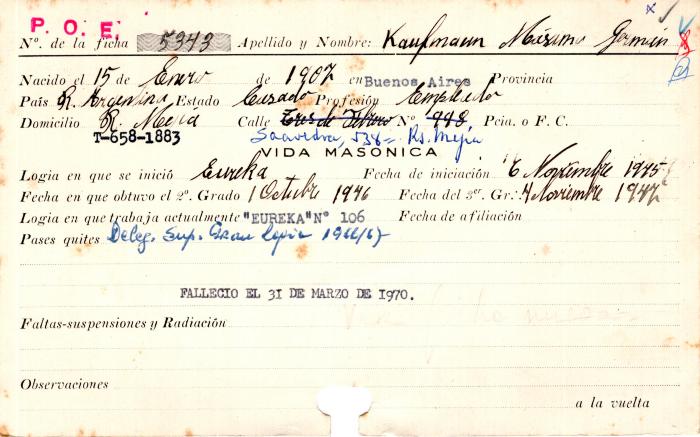 P. O. E.
Nº. de la ficha 5343 Apellido y Nombre: Kaufmann Máximo Germán
Nacido el 15 de Enero de 1907 en Buenos Aires Provincia
País R. Argentina Estado Casado Profesión Empleado
Domicilio R. Mejía Calle Tres de Febrero Nº. 998 Pcia. o F. C.
T-658-1883 Saavedra, 538 = Rs. Mejía
VIDA MASONICA
Logia en que se inició Eureka Fecha de iniciación 6 Noviembre 1945
Fecha en que obtuvo el 2º. Grado 1 Octubre 1946 Fecha del 3er. Gr.: 4 Noviembre 1947
Logia en que trabaja actualmente "EUREKA" Nº 106 Fecha de afiliación
Pases quites Deleg. Sup. Gran Logia 1966/67
FALLECIO EL 31 DE MARZO DE 1970.
Faltas-suspensiones y Radiación
Observaciones
a la vuelta